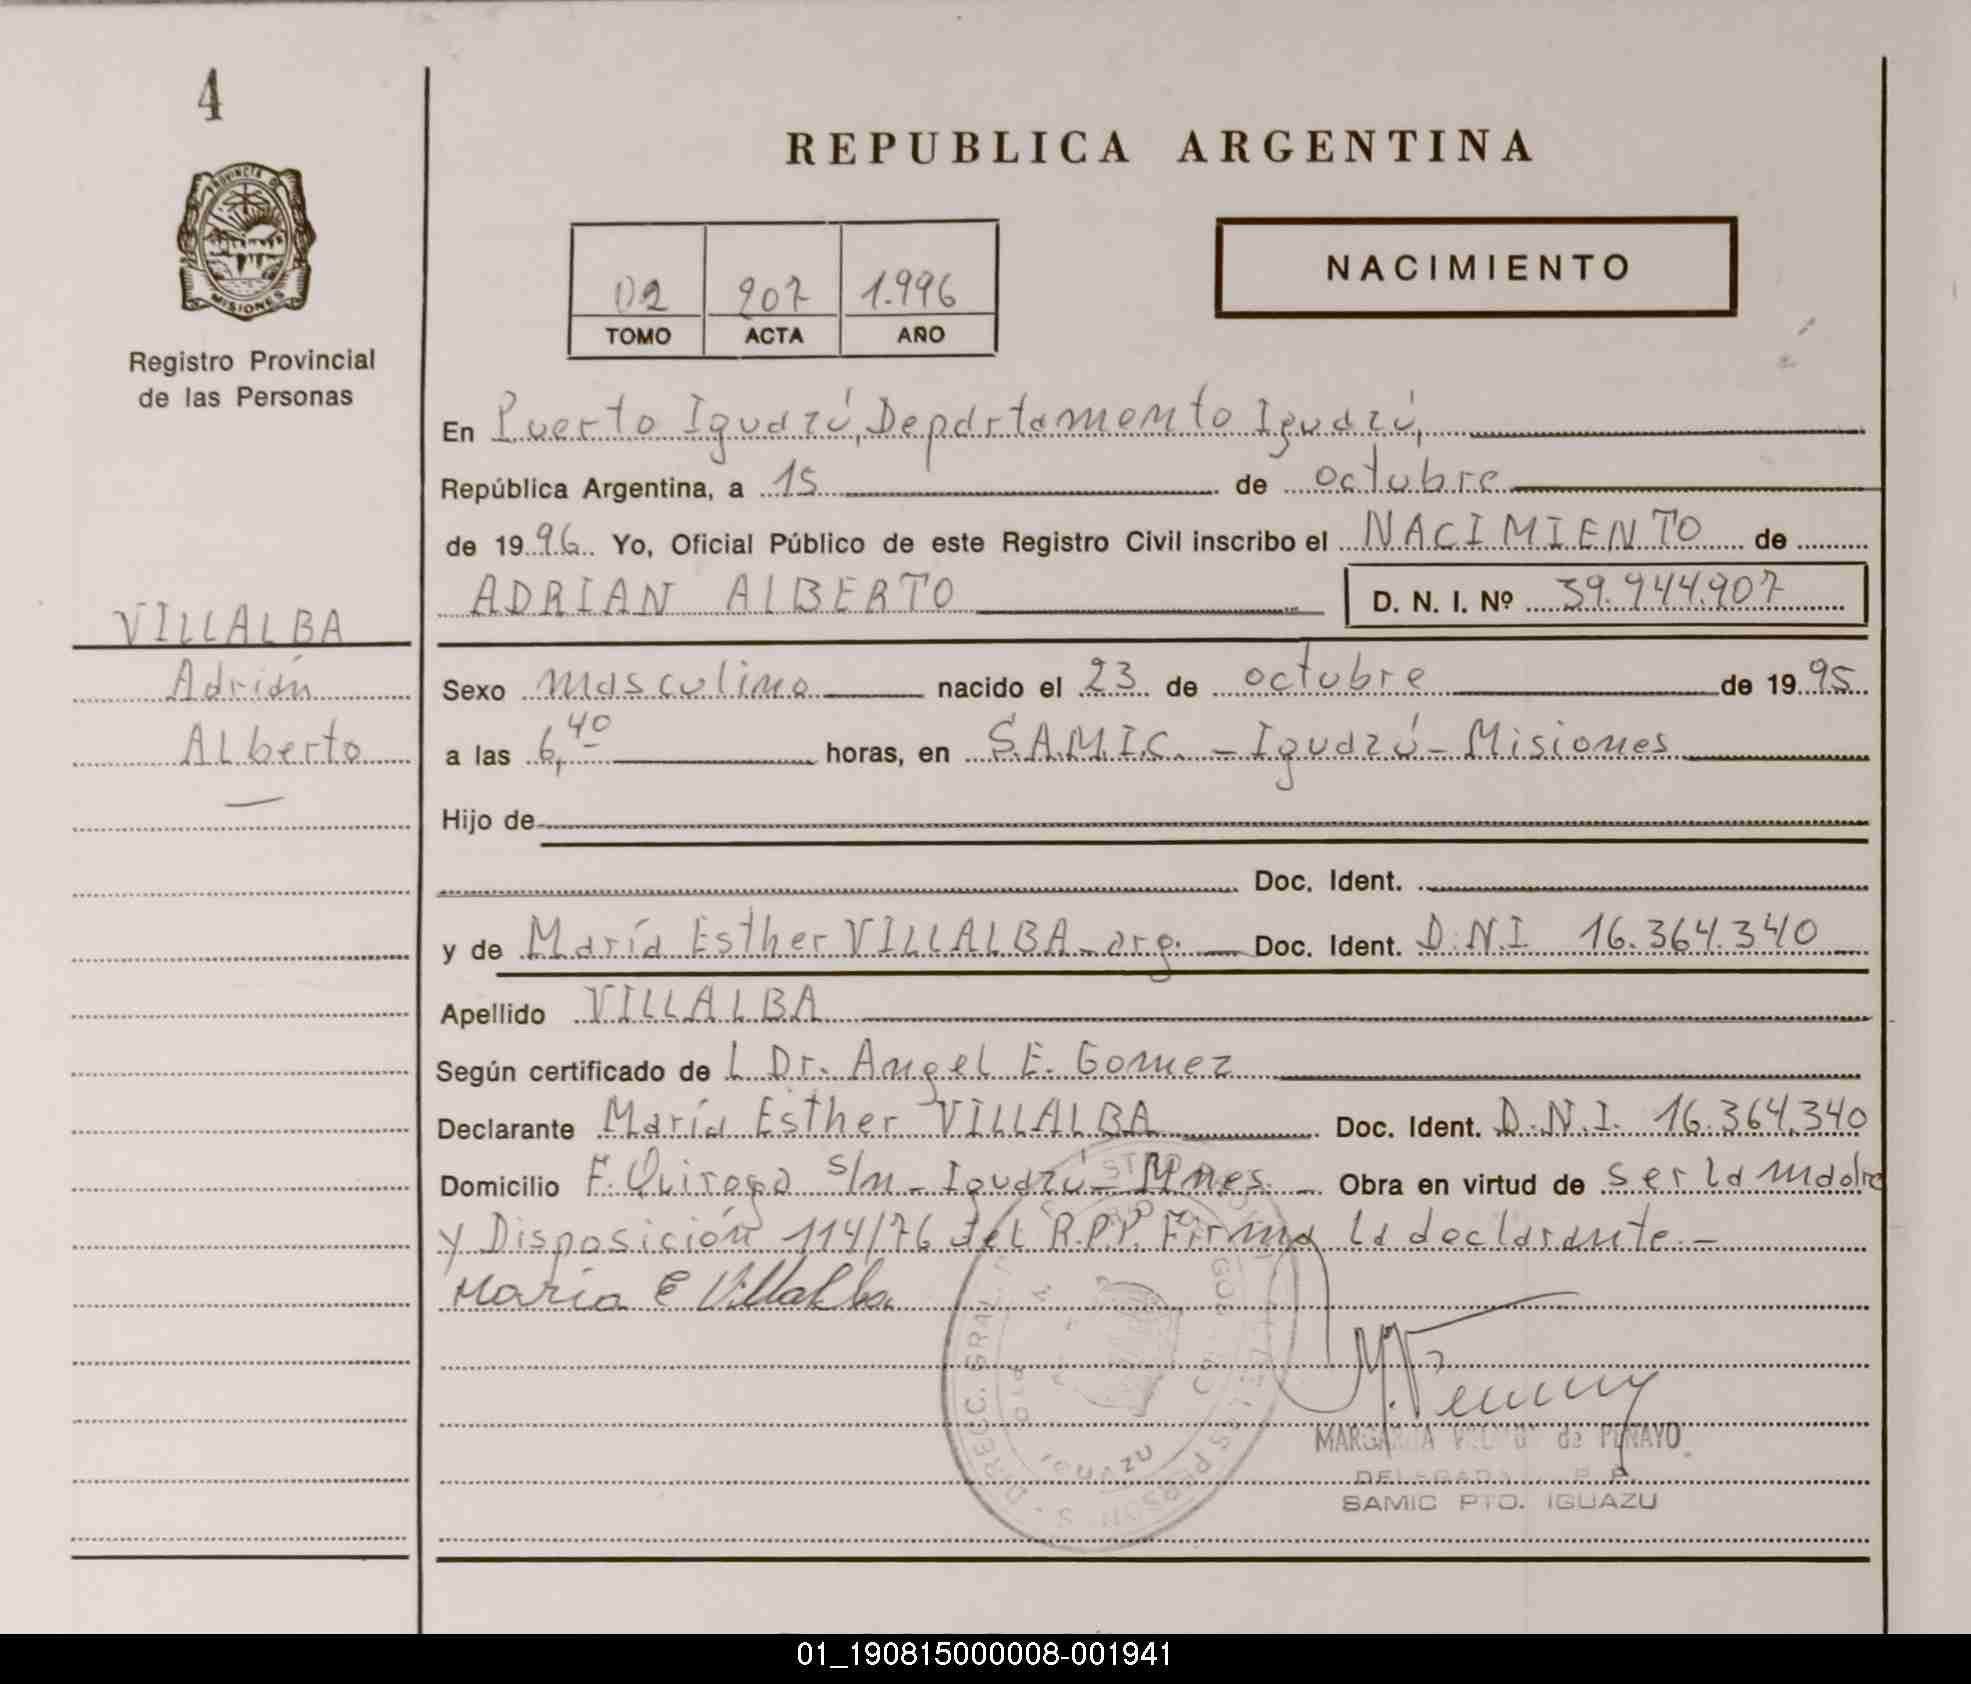 4
PROVINCIA DE
MISIONES
Registro Provincial
de las Personas
REPUBLICA ARGENTINA
NACIMIENTO
02 207 1.996
TOMO ACTA AÑO
En Puerto Iguazú, Departamento Iguazú,
República Argentina, a 15 de octubre
de 1996 Yo, Oficial Público de este Registro Civil inscribo el NACIMIENTO de
ADRIAN ALBERTO D. N. I. Nº 39.944.907
VILLALBA
Adrián
Alberto
Sexo masculino nacido el 23 de octubre de 1995
a las 6,40 horas, en S.A.M.I.C. - Iguazú - Misiones
Hijo de
Doc. Ident.
y de María Esther VILLALBA - arg. Doc. Ident. D.N.I 16.364.340
Apellido VILLALBA
Según certificado de L Dr. Angel E. Gomez
Declarante María Esther VILLALBA Doc. Ident. D.N.I. 16.364.340
Domicilio F. Quiroga s/n - Iguazú - Mnes. - Obra en virtud de ser la madre
y Disposición 114/76 del R.P.P. Firma la declarante. -
María E Villalba
MARGARITA de PENAYO
DELEGADA R. P. P.
SAMIC PTO. IGUAZU
01_190815000008-001941